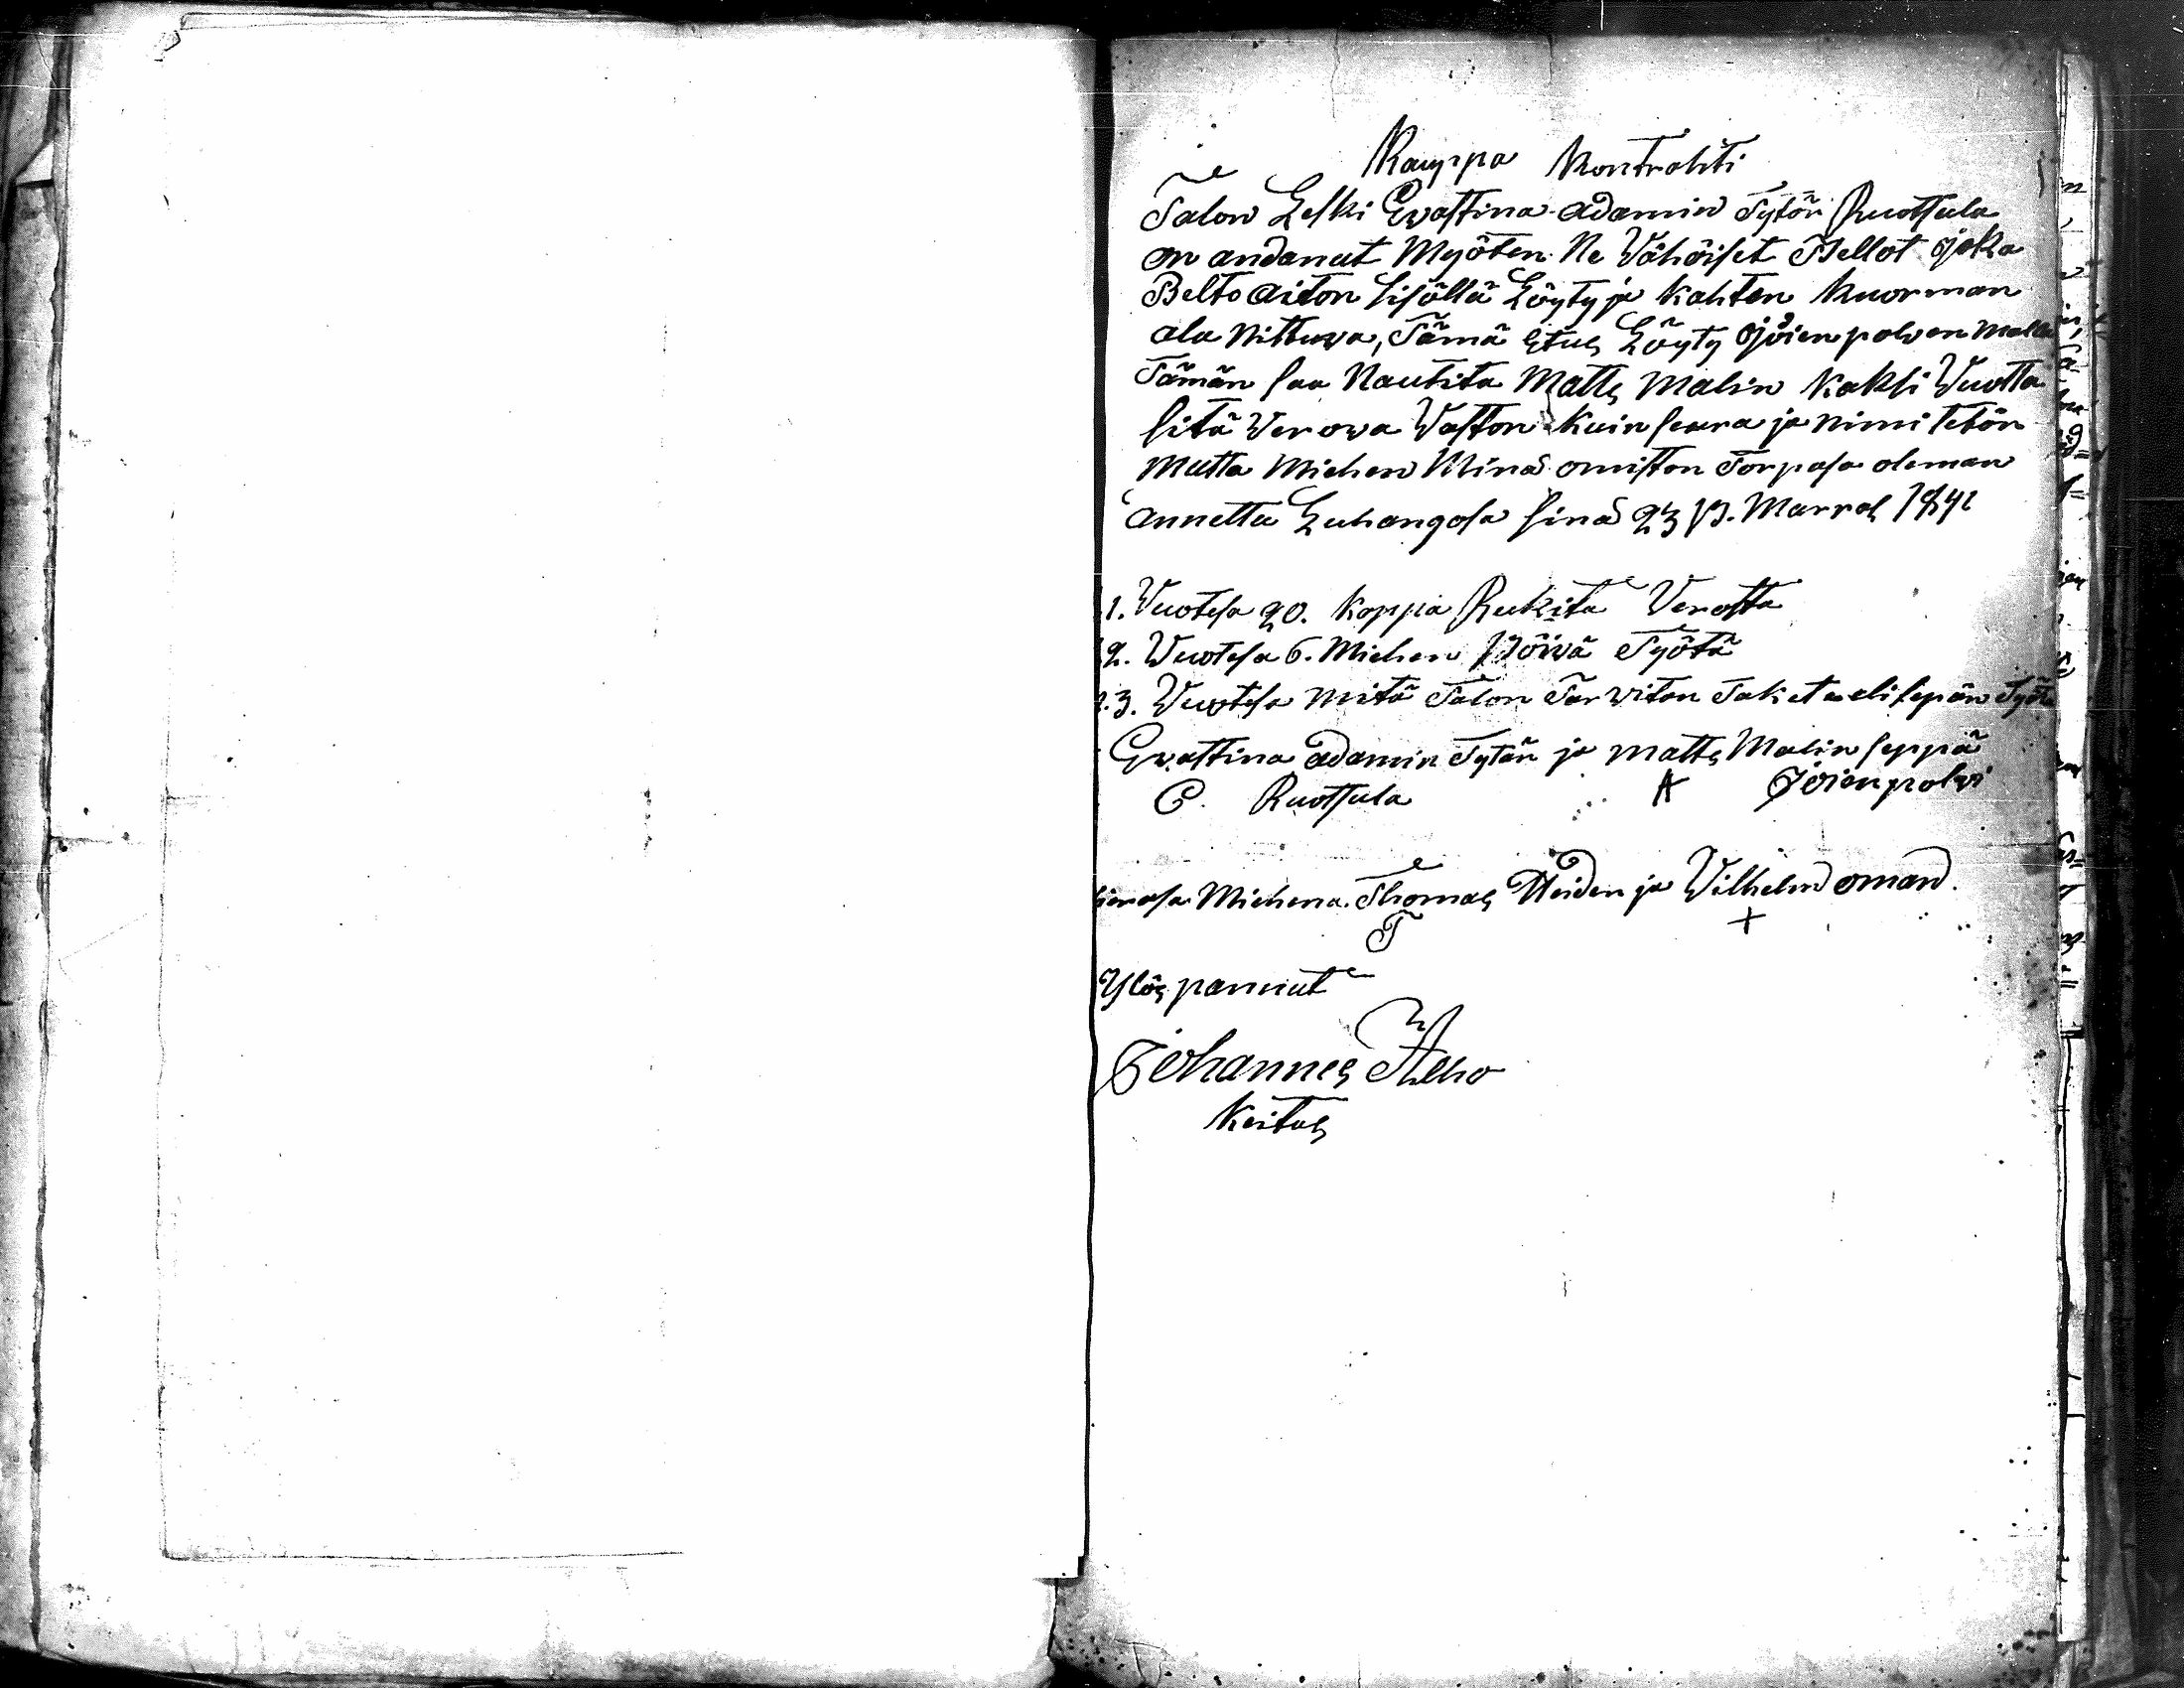 Kauppa Kontrahti
Talon Leski Evastina Adamin Tytön Ruottula
on andanut Myöten Ne Vähäiset Pellot jotka
Belto aiton sisällä Löyty ja kahten kuorman
ala Nittuva, Tämä Etus Löyty Jöienpolven Malla
Tämän saa Nautita Matts Malin kaksi Vuotta
sitä Verowa Vaston kuin seura ja nimitetän
Mutta Miehen Minä omiston Torpasa oleman
annettu Luhangosa sinä 23 P. Marras 1841
1. Vuotesa 20. Koppa Rukita Verosta
2. Vuotesa 6. Miehen Päivä Työtä
3. Vuotesa mitä Talon Tarviton Taketa eli sepän Työtä
Evastina Adamin Tytär ja Matts Malin seppä
E. Ruottula A Jöienpolvi
Miehena Thomas Heiden ja Vilhelm oman.
T +
Ylös pannut
Johannes Alho
Keitas